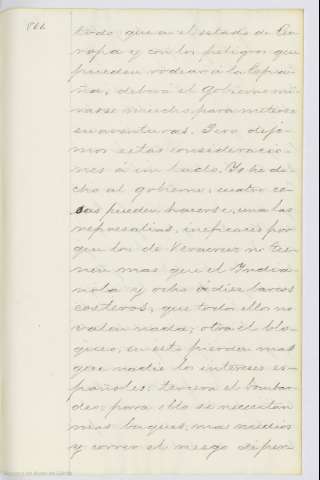 866
todo que a el estado de Eu
ropa y con los peligros que
pueden rodear á la Espa
ña, deberá el Gobierno mi
rarse mucho para meterse
en aventuras. Pero deje
mos estas consideracio
nes á un lado. Yo he di
cho al gobierno, cuatro co
sas pueden hacerse, una las
represalias, ineficaces por
que los de Veracruz no tie
nen mas que el Indiа
nola y ocho ó diez barcos
costeros, que todo ello no
vale nada; otra el blo
queo, en este pierden mas
que nadie los intereses es
pañoles: tercera el bombar
deo; para ello se necesitan
mas buques, mas medios
y correr el riesgo de per